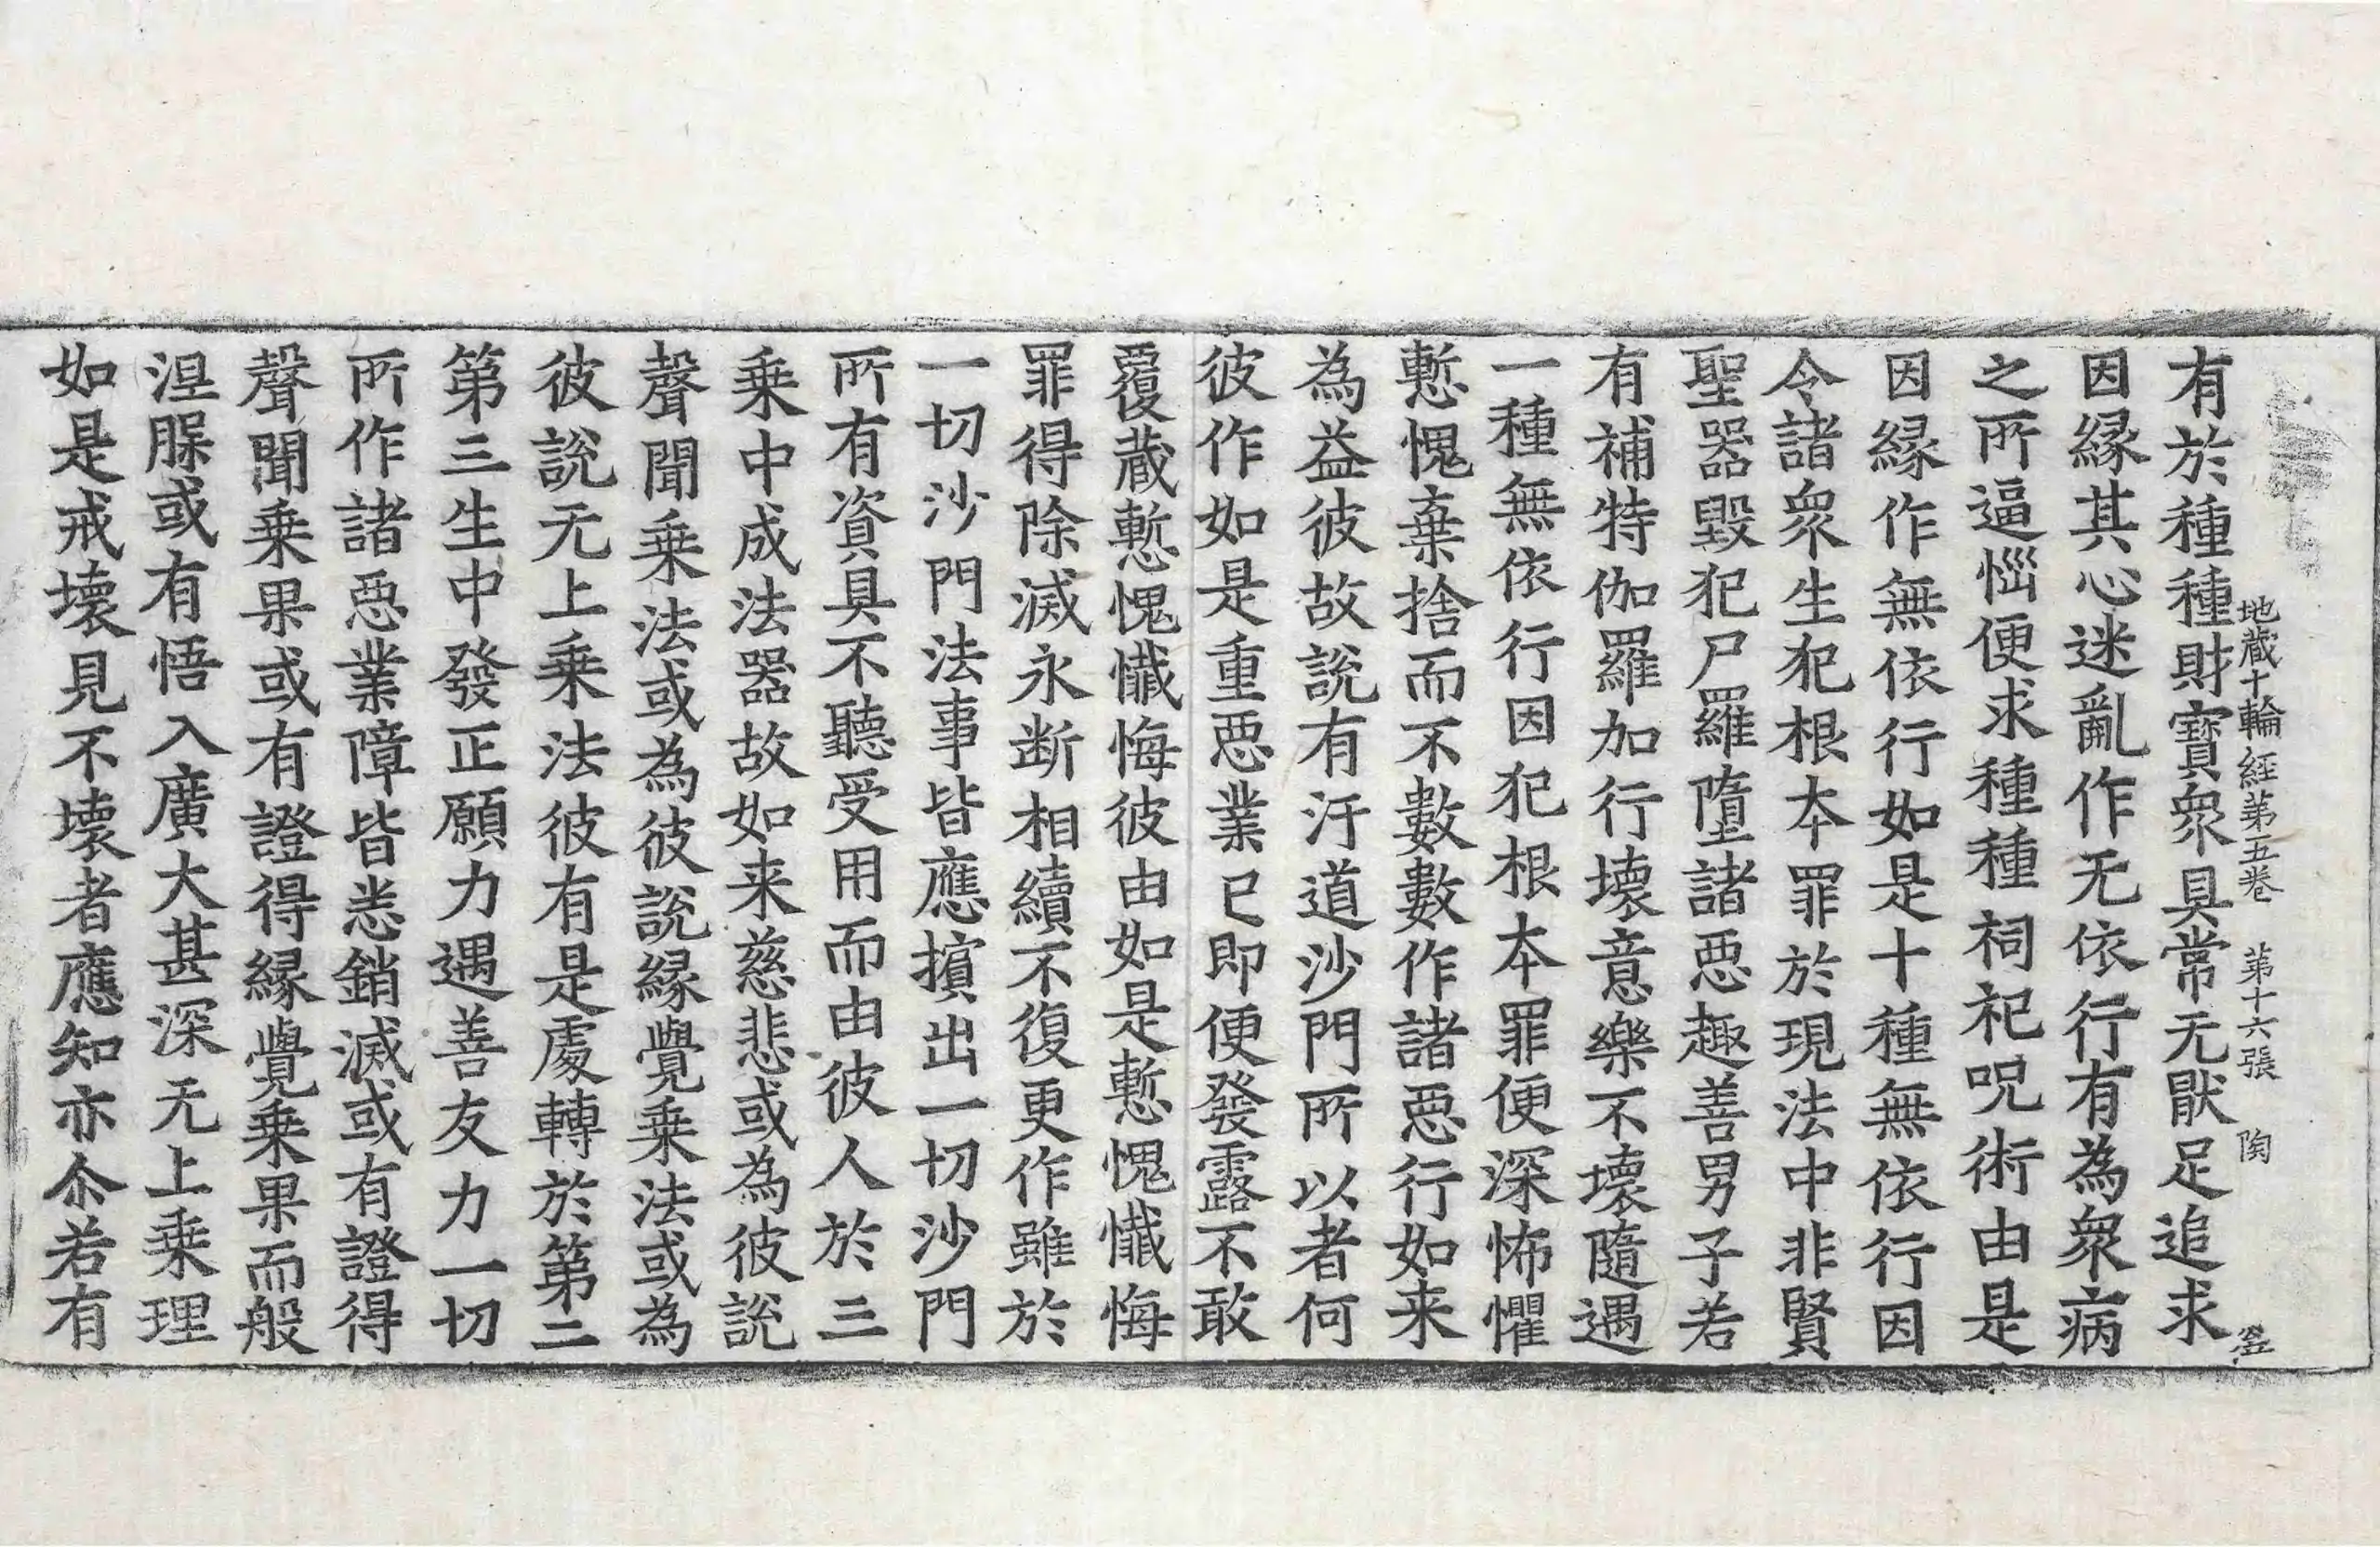 地藏十輪經第五卷 第十六張 陶
有於種種財寶衆具常无猒足追求
因緣其心迷亂作无依行有為衆病
之所逼惱便求種種祠祀呪術由是
因緣作無依行如是十種無依行因
令諸衆生犯根本罪於現法中非賢
聖器毀犯尸羅墮諸惡趣善男子若
有補特伽羅加行壞意樂不壞隨遇
一種無依行因犯根本罪便深怖懼
慙愧棄捨而不數數作諸惡行如来
為益彼故說有汙道沙門所以者何
彼作如是重惡業已即便發露不敢
覆藏慙愧懺悔彼由如是慙愧懺悔
罪得除滅永斷相續不復更作雖於
一切沙門法事皆應擯出一切沙門
所有資具不聽受用而由彼人於三
乗中成法器故如来慈悲或為彼說
聲聞乗法或為彼說緣覺乗法或為
彼說无上乗法彼有是處轉於第二
第三生中發正願力遇善友力一切
所作諸惡業障皆悉銷滅或有證得
聲聞乗果或有證得緣覺乗果而般
涅脲或有悟入廣大甚深无上乗理
如是戒壞見不壞者應知亦尒若有